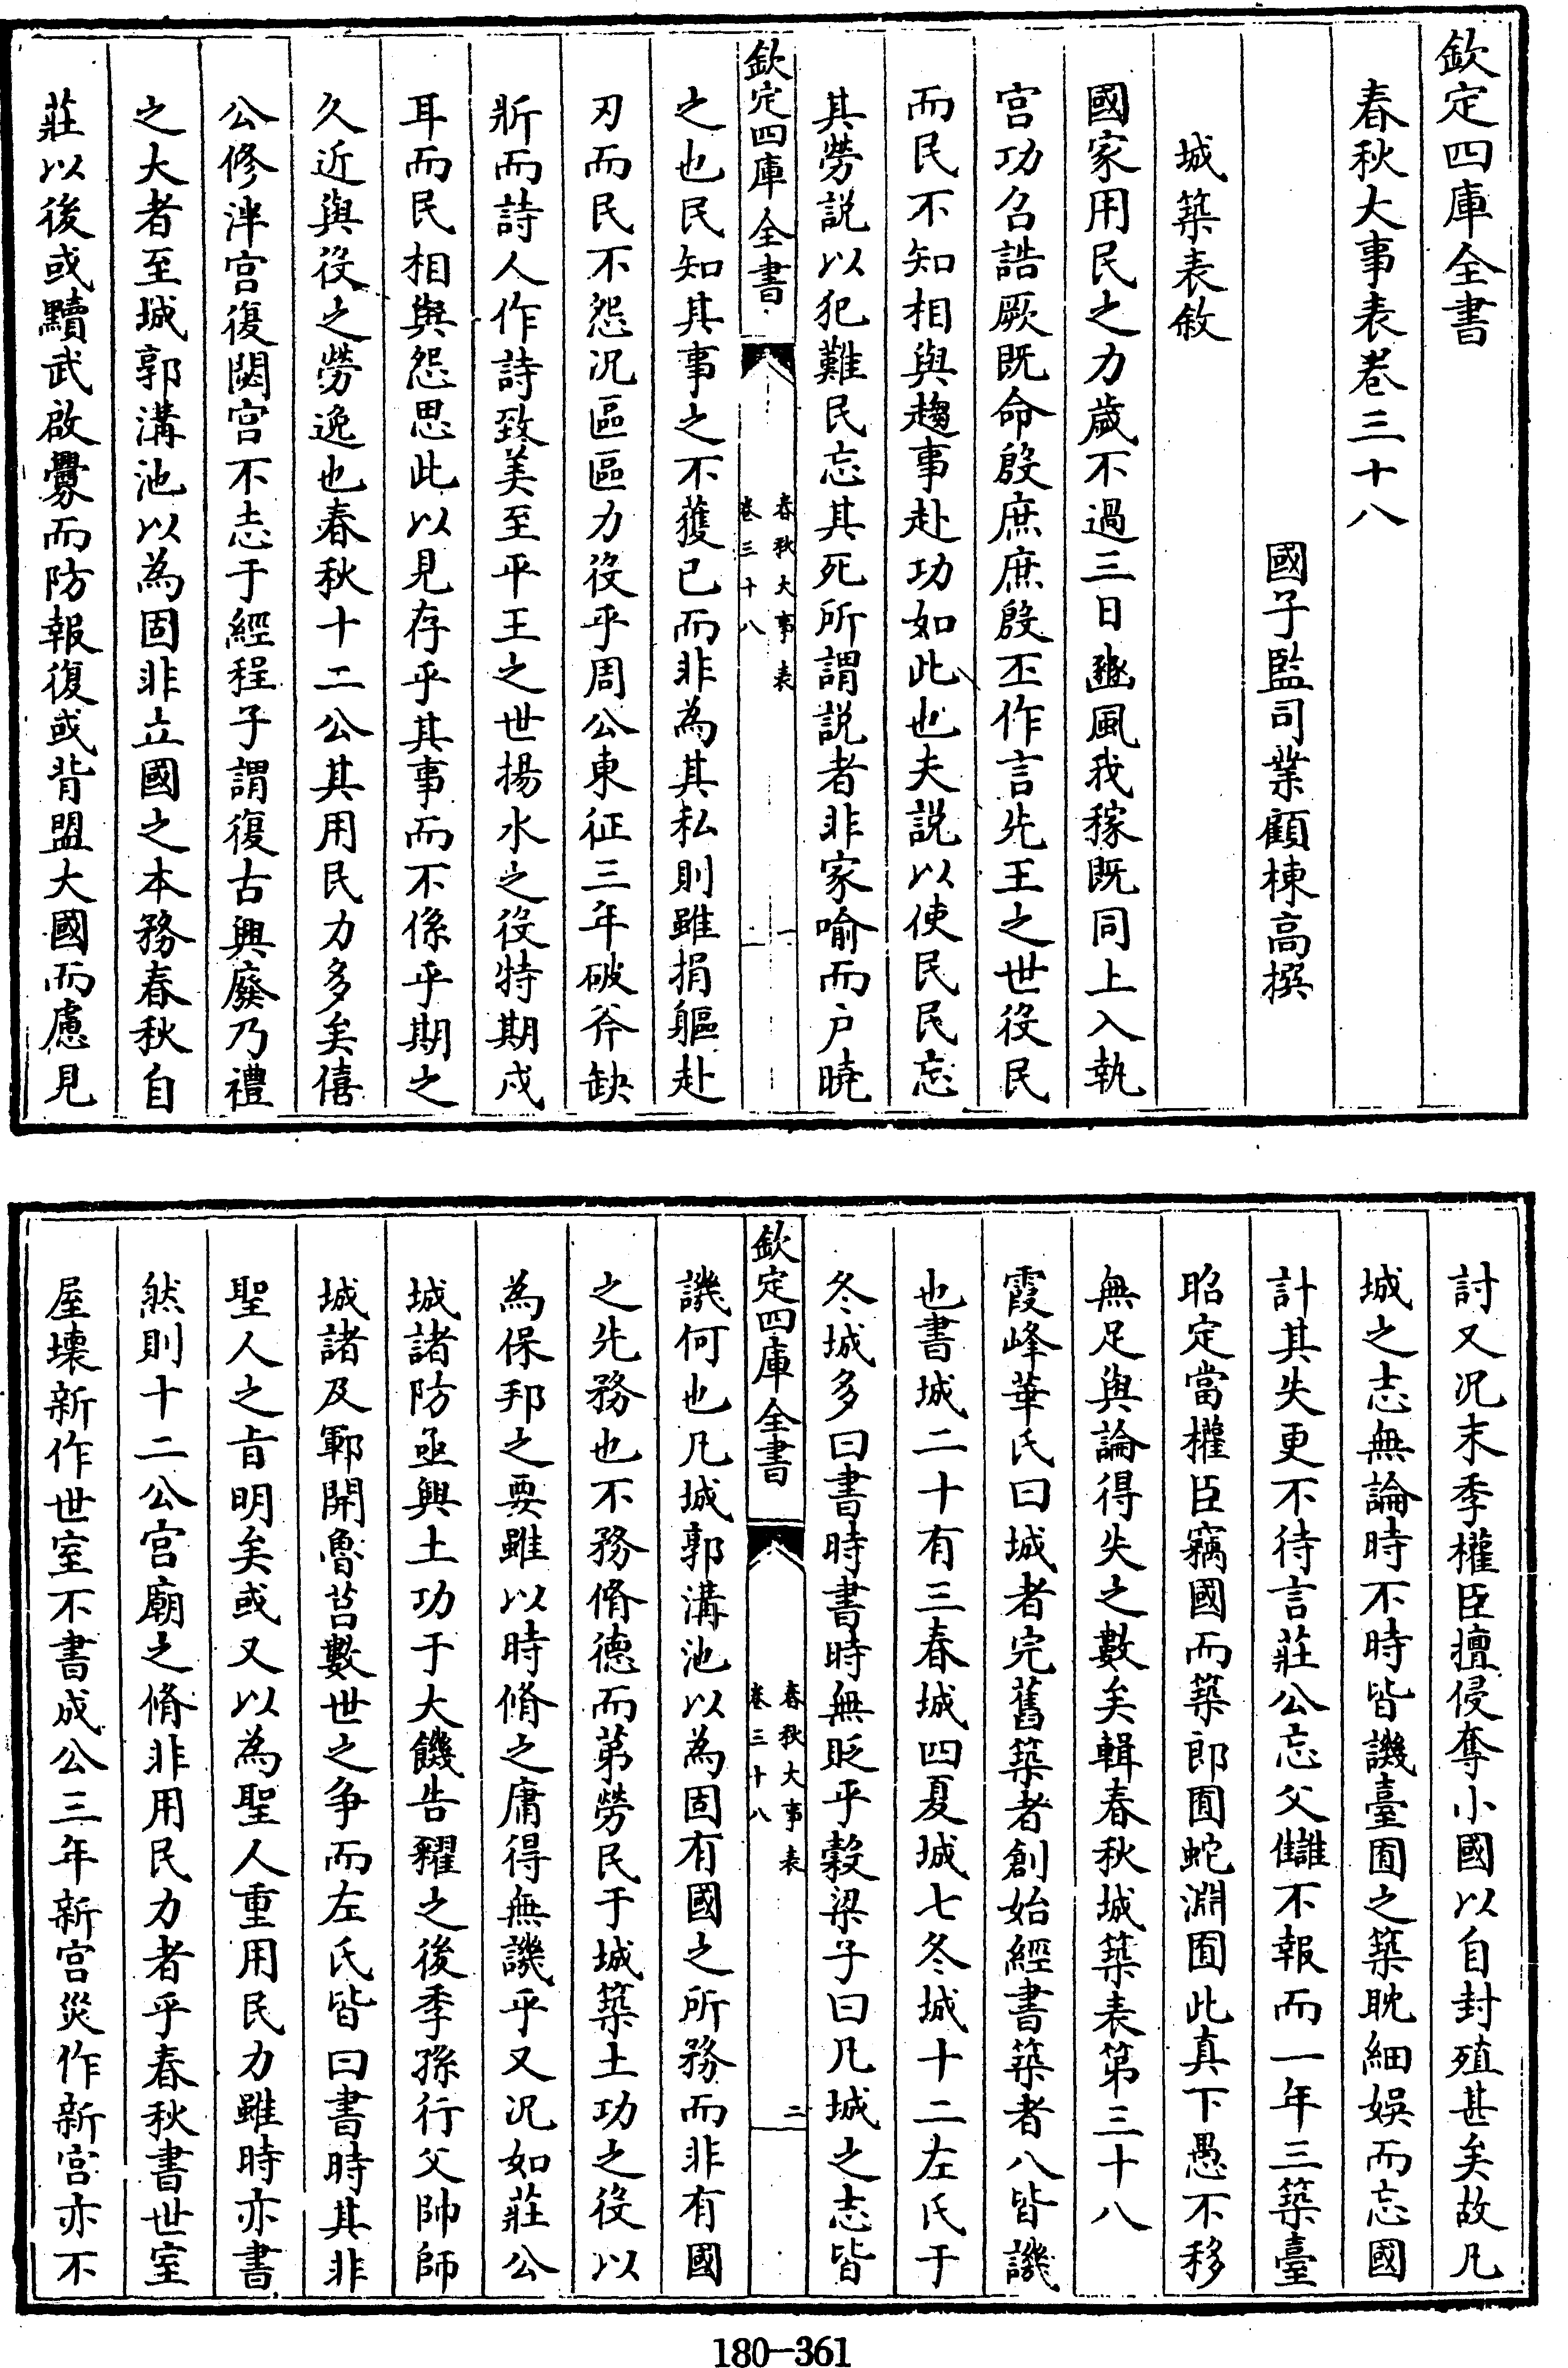 欽定四庫全書
春秋大事表卷三十八
國子監司業顧棟高撰
城築表敘
國家用民之力歲不過三日豳風我稼既同上入執
宫功召誥厥既命殷庶庶殷丕作言先王之世役民
而民不知相與趨事赴功如此也夫説以使民民忘
其勞説以犯難民忘其死所謂説者非家喻而户曉
欽定四庫全書
春秋大事表
卷三十八
一
之也民知其事之不獲已而非為其私則雖捐軀赴
刃而民不怨况區區力役乎周公東征三年破斧缺
斨而詩人作詩致美至平王之世揚水之役特期戍
耳而民相與怨思此以見存乎其事而不係乎期之
久近與役之勞逸也春秋十二公其用民力多矣僖
公修泮宫復閟宫不志于經程子謂復古興廢乃禮
之大者至城郭溝池以為固非立國之本務春秋自
莊以後或黷武啟釁而防報復或背盟大國而慮見
討又况末季權臣擅侵奪小國以自封殖甚矣故凡
城之志無論時不時皆譏臺囿之築耽細娱而忘國
計其失更不待言莊公忘父讎不報而一年三築臺
昭定當權臣竊國而築郎囿蛇淵囿此真下愚不移
無足與論得失之數矣輯春秋城築表第三十八
霞峰華氏曰城者完舊築者創始經書築者八皆譏
也書城二十有三春城四夏城七冬城十二左氏于
冬城多曰書時書時無貶乎穀梁子曰凡城之志皆
欽定四庫全書
春秋大事表
卷三十八
二
譏何也凡城郭溝池以為固有國之所務而非有國
之先務也不務脩德而苐勞民于城築土功之役以
為保邦之要雖以時脩之庸得無譏乎又况如莊公
城諸防亟興土功于大饑告糴之後季孫行父帥師
城諸及鄆開魯莒數世之争而左氏皆曰書時其非
聖人之旨明矣或又以為聖人重用民力雖時亦書
然則十二公宫廟之脩非用民力者乎春秋書世室
屋壞新作世室不書成公三年新宫災作新宫亦不
180-361